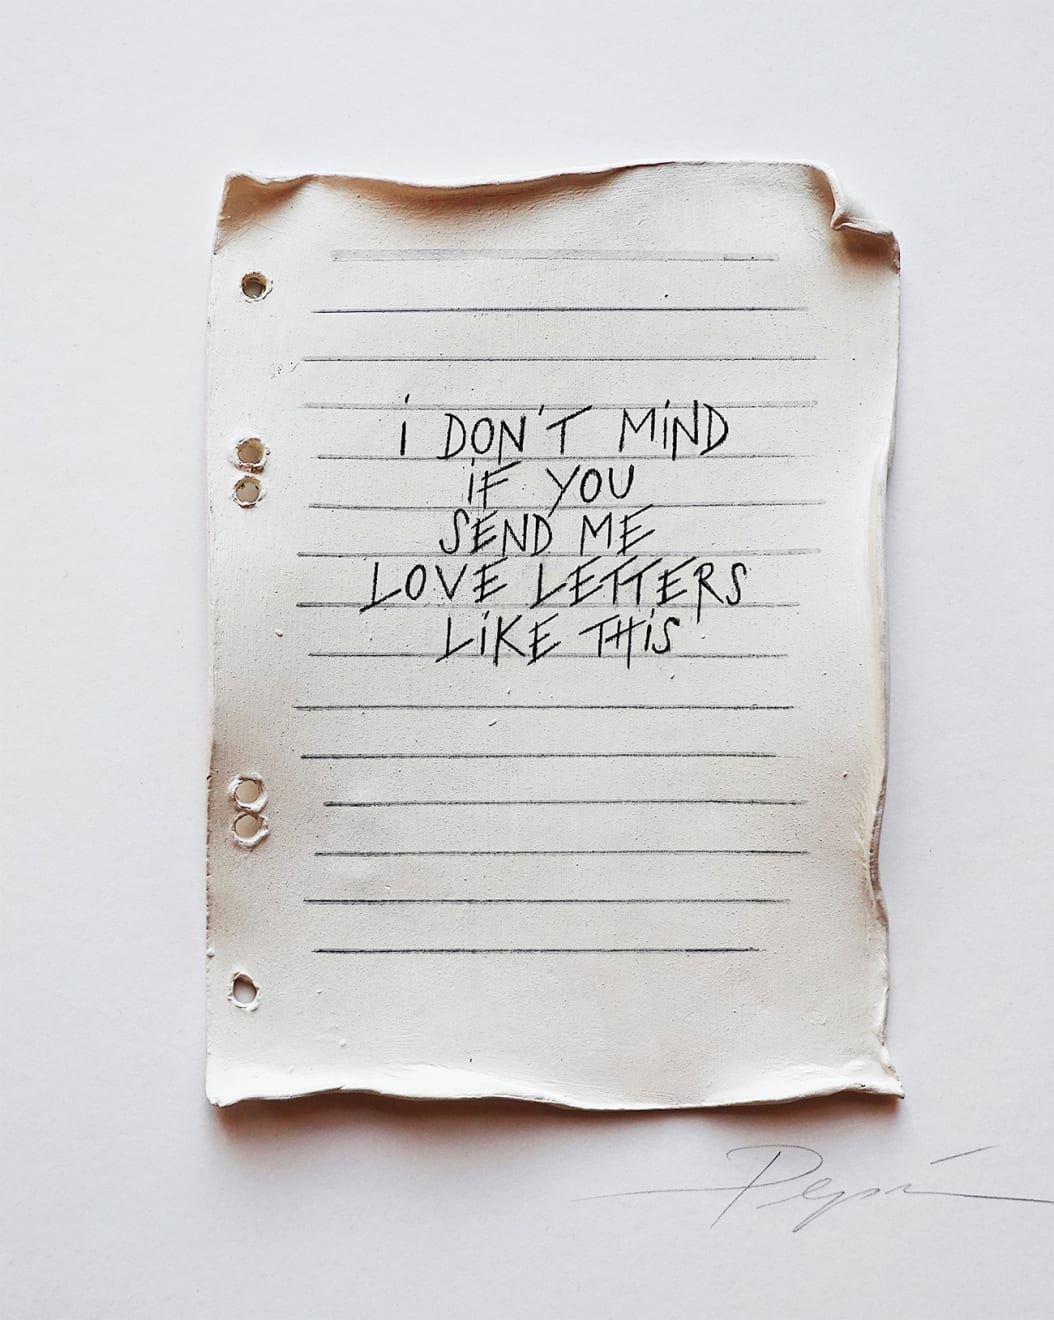 i DON'T MiND
iF YOU
SEND ME
LOVE LETTERS
LiKE THiS